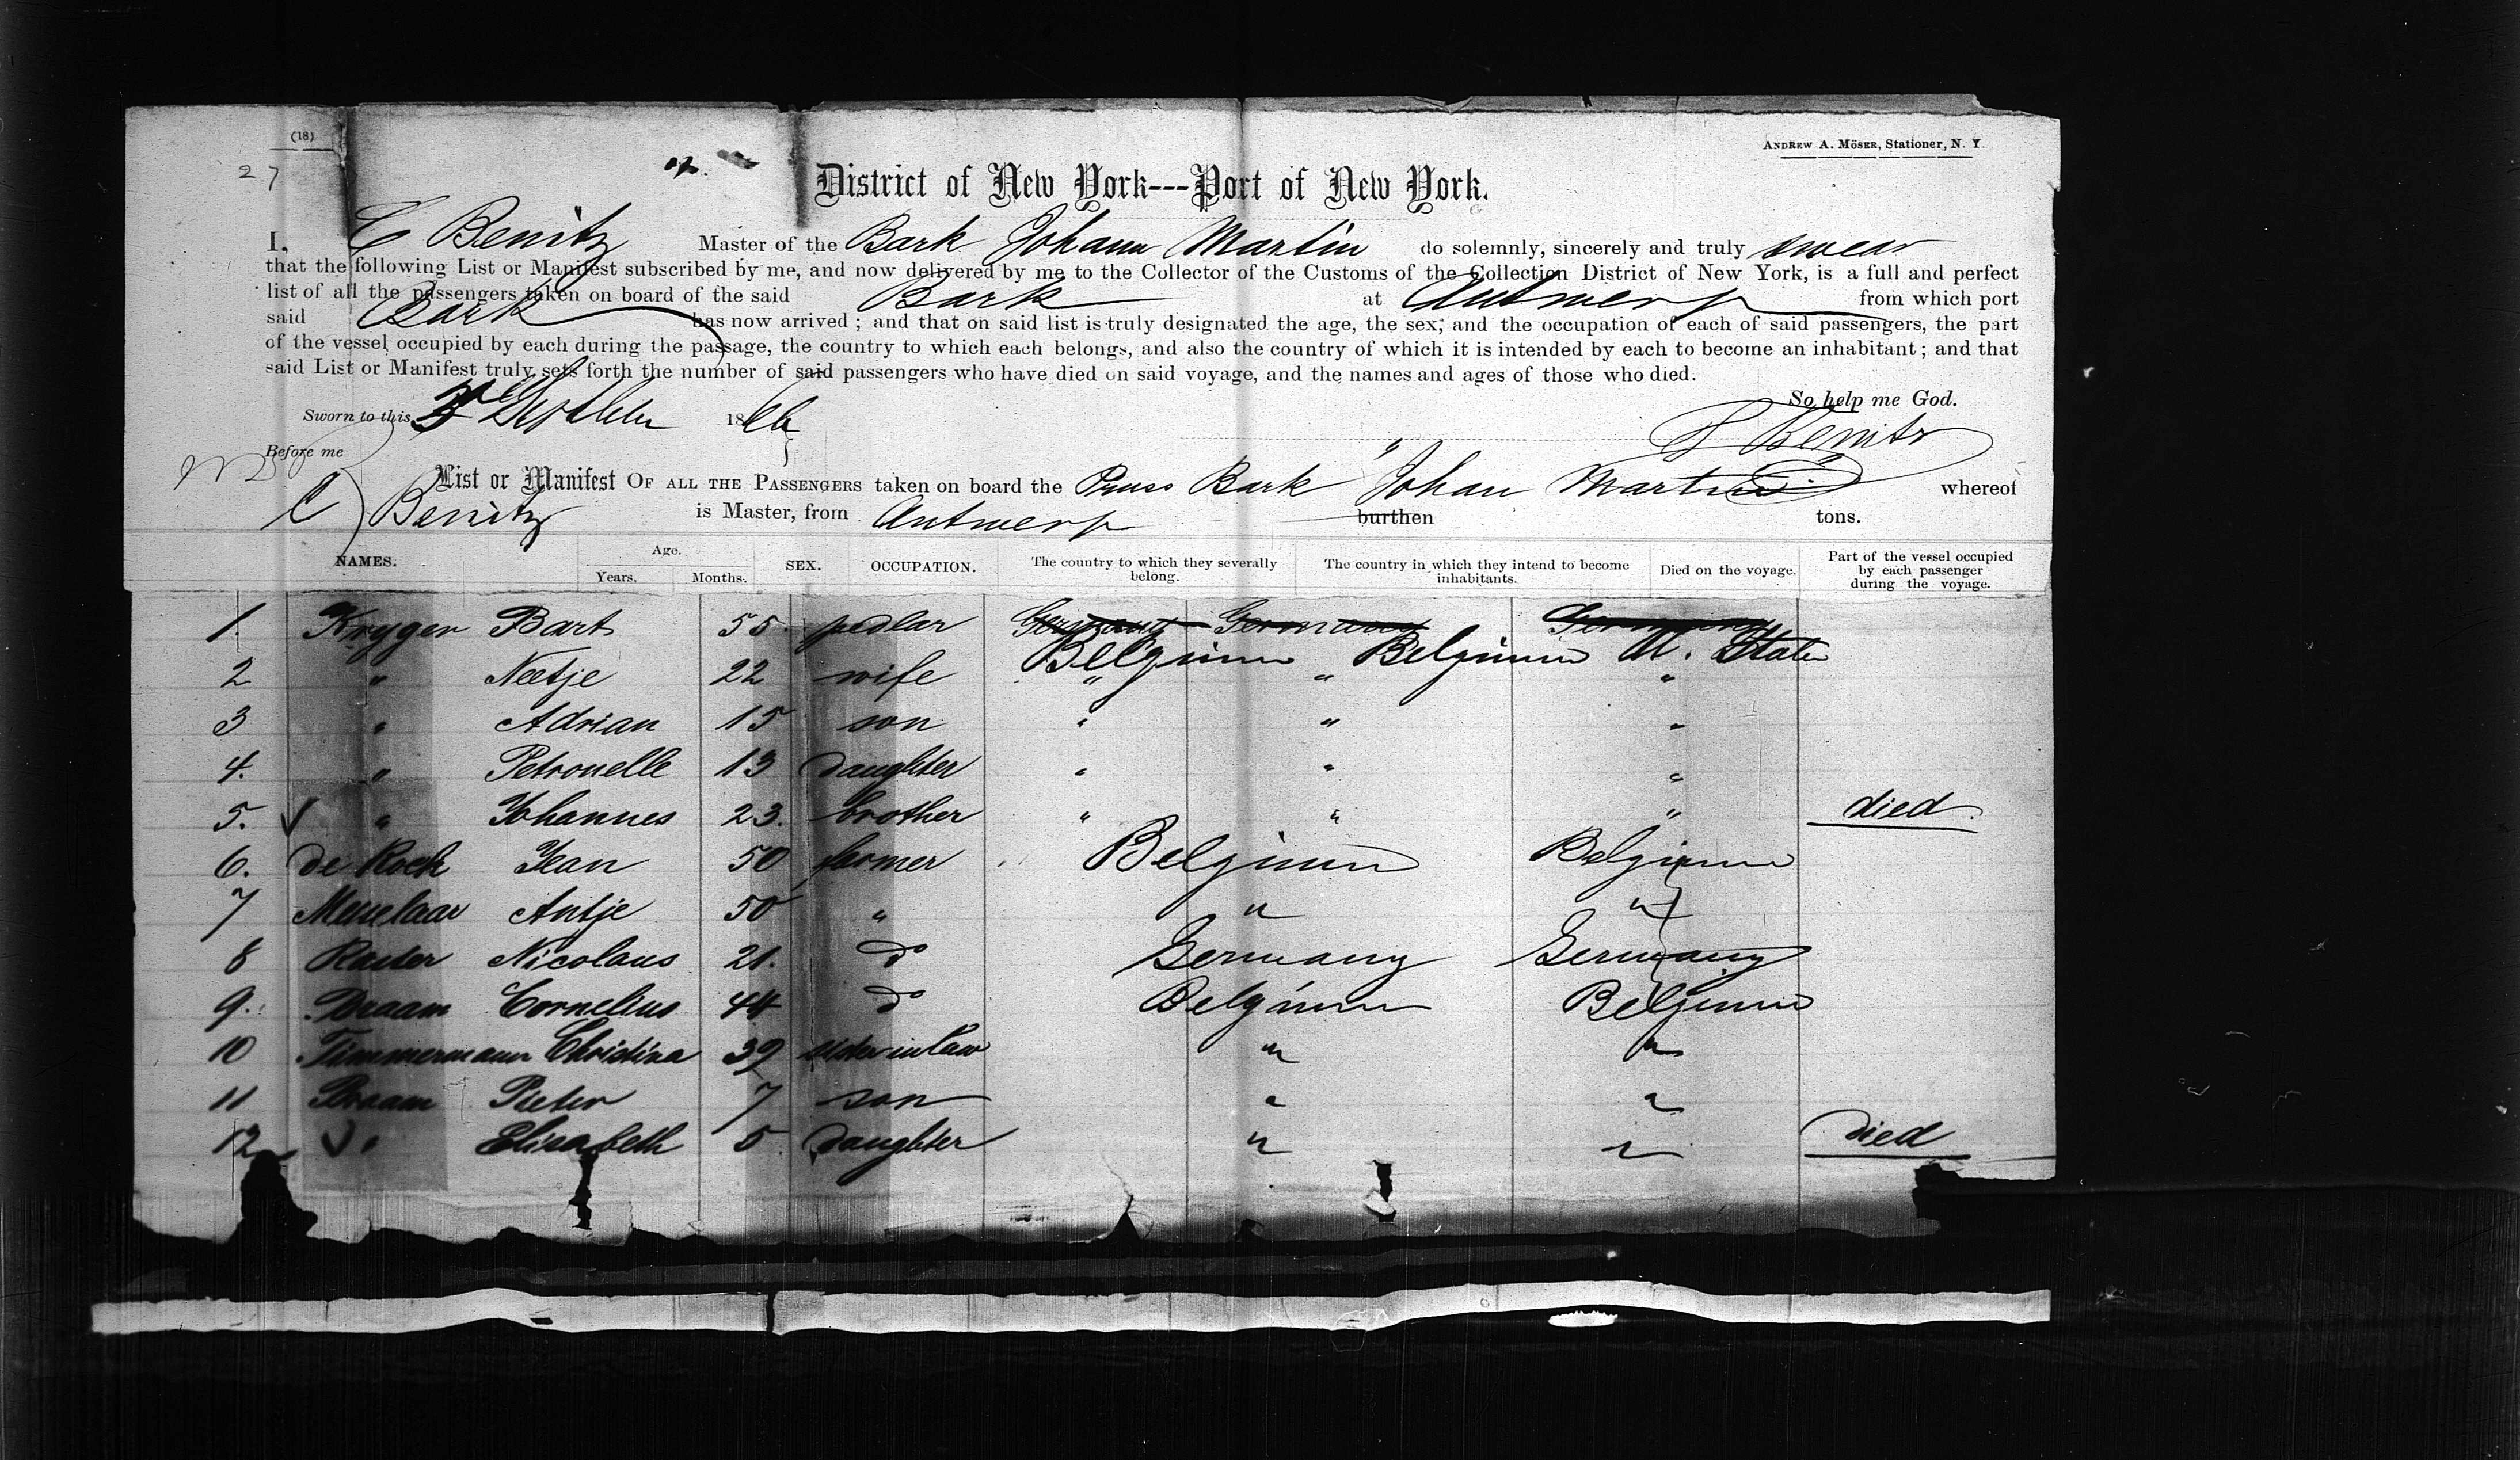 (18)
ANDREW A. MÖSER, Stationer, N. Y.
27
District of New York---Port of New York.
I, C Benitz Master of the Bark Johann Martin do solemnly, sincerely and truly swear
that the following List or Manifest subscribed by me, and now delivered by me to the Collector of the Customs of the Collection District of New York, is a full and perfect
list of all the passengers taken on board of the said Bark at Antwerp from which port
said Bark has now arrived; and that on said list is truly designated the age, the sex, and the occupation of each of said passengers, the part
of the vessel occupied by each during the passage, the country to which each belongs, and also the country of which it is intended by each to become an inhabitant; and that
said List or Manifest truly sets forth the number of said passengers who have died on said voyage, and the names and ages of those who died.
So help me God.
Sworn to this 1866
Benitz
Before me
List or Manifest OF ALL THE PASSENGERS taken on board the Pruss Bark "Johan Martin" whereof
C Benitz is Master, from Antwerp burthen tons.
NAMES. Age. Years. Months. SEX. OCCUPATION. The country to which they severally belong. The country in which they intend to become inhabitants. Died on the voyage. Part of the vessel occupied by each passenger during the voyage.
1. Kryger Bart 55 pedlar Germany Germany Germany
Belgium " Belgium U. States
2 " Neetje 22 wife " " "
3 " Adrian 15 son " " "
4. " Petronelle 13 daughter " " "
5. " Johannes 23. brother " " " died.
6. de Rock Jean 50 farmer Belgium Belgium
7 Antje 50 " " "
8 Ruiter Nicolaus 21. do Germany Germany
9. Braam Cornelius 44 do Belgium Belgium
10 Timmermann Christina 39 sister in law " "
11 Braam Pieter 7 son " "
12 " Elisabeth 5 daughter " " died